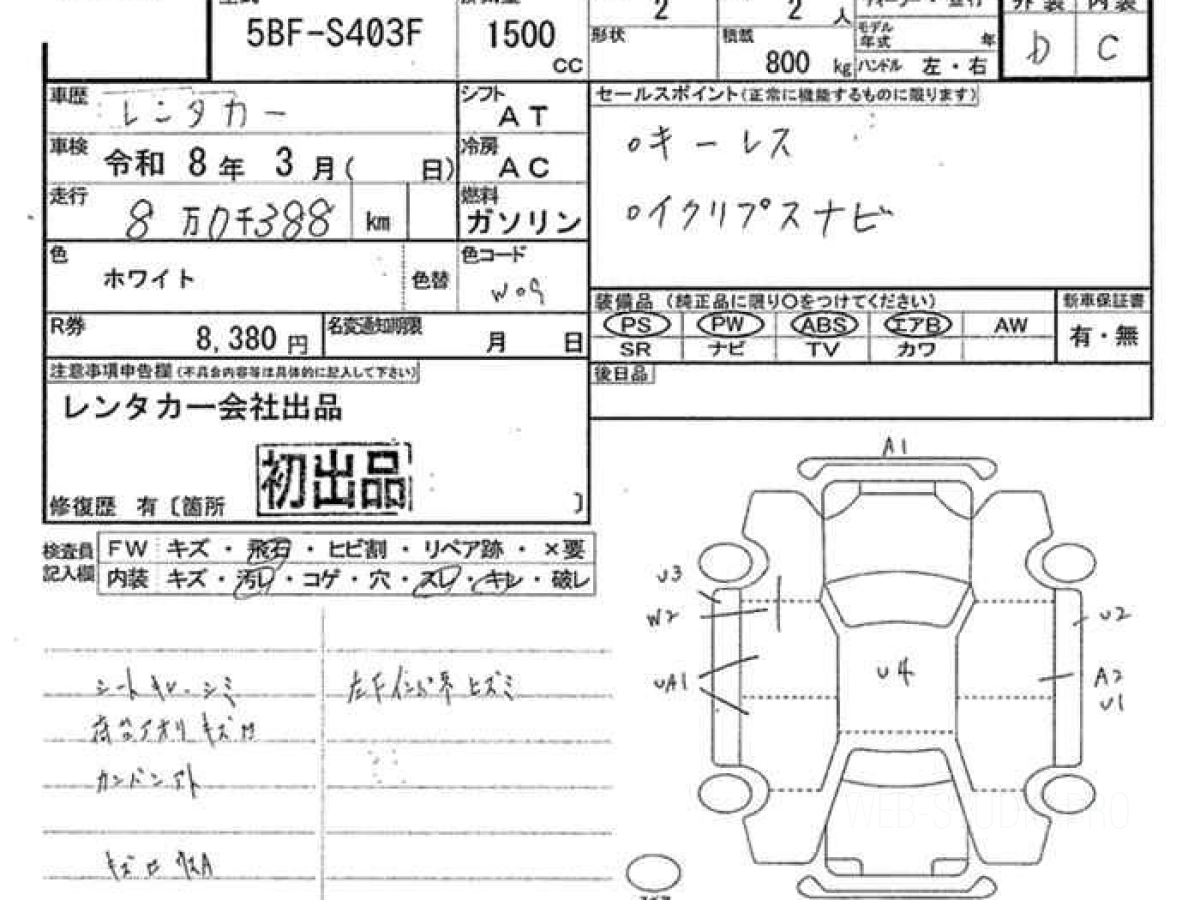 5BF-S403F
1500
CC
2
2
人
形状
積載
800
kg
モデル
年式
年
ハンドル 左・右
外装 内装
D C
車歴
レンタカー
シフト
AT
セールスポイント(正常に機能するものに限ります)
○キーレス
○イクリプスナビ
車検
令和 8年 3月( 日)
冷房
AC
走行
8万0千388 km
燃料
ガソリン
色
ホワイト
色替
色コード
W09
R券
8,380 円
名変通知期限
月 日
装備品 (純正品に限り○をつけてください)
PS PW ABS エアB AW
SR ナビ TV カワ
新車保証書
有・無
後日品
注意事項申告欄(不具合内容等は具体的に記入して下さい)
レンタカー会社出品
初出品
修復歴 有〔箇所 〕
検査員
記入欄
FW キズ・飛石・ヒビ割・リペア跡・×要
内装 キズ・汚レ・コゲ・穴・スレ・キレ・破レ
シートキレ・シミ
荷台アオリキズ凹
カンバンアト
左Fインパネ ヒズミ
A1
U3
W2
UA1
U4
U2
A2
U1
WEB-STUDIO.PRO